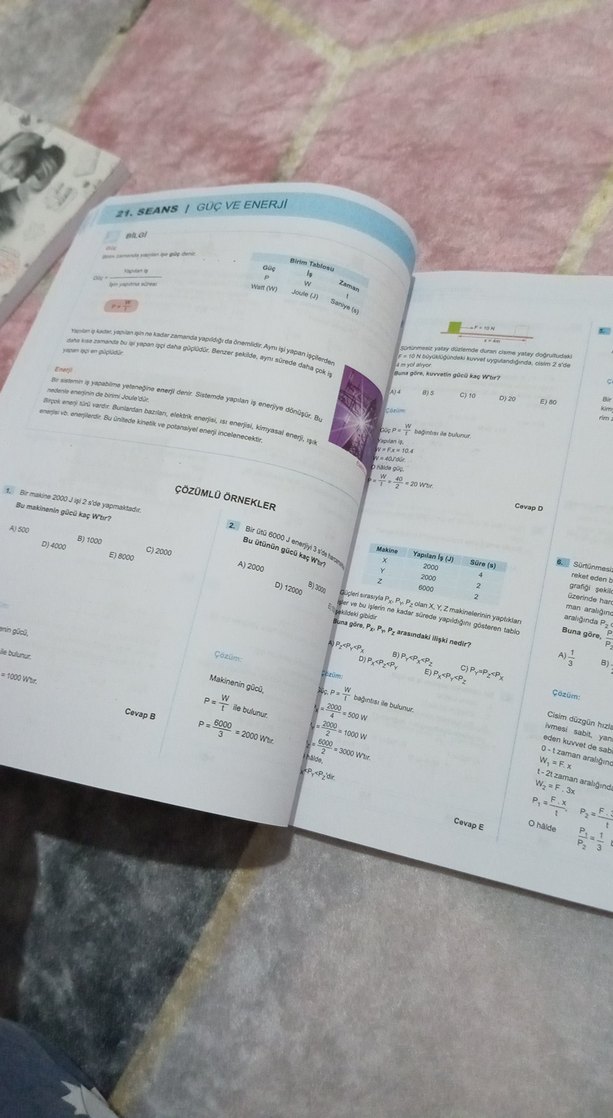 21. SEANS | GÜÇ VE ENERJİ
BİLGİ
Güç
Birim zamanda yapılan işe güç denir.
Güç = Yapılan iş
İşin yapılma süresi
P = W
t
Birim Tablosu
Güç İş Zaman
P W t
Watt (W) Joule (J) Saniye (s)
Yapılan iş kadar, yapılan işin ne kadar zamanda yapıldığı da önemlidir. Aynı işi yapan işçilerden
daha kısa zamanda bu işi yapan işçi daha güçlüdür. Benzer şekilde, aynı sürede daha çok iş
yapan işçi en güçlüdür.
Enerji
Bir sistemin iş yapabilme yeteneğine enerji denir. Sistemde yapılan iş enerjiye dönüşür. Bu
nedenle enerjinin de birimi Joule'dür.
Birçok enerji türü vardır. Bunlardan bazıları, elektrik enerjisi, ısı enerjisi, kimyasal enerji, ışık
enerjisi vb. enerjilerdir. Bu ünitede kinetik ve potansiyel enerji incelenecektir.
ÇÖZÜMLÜ ÖRNEKLER
1. Bir makine 2000 J işi 2 s'de yapmaktadır.
Bu makinenin gücü kaç W'tır?
A) 500 B) 1000 C) 2000
D) 4000 E) 8000
gücü,
ile bulunur.
= 1000 W'tır.
Cevap B
2. Bir ütü 6000 J enerjiyi 3 s'de
Bu ütünün gücü kaç W'tır?
A) 2000 B) 3000
D) 12000
Çözüm:
Makinenin gücü,
P = W
t ile bulunur.
P = 6000
3 = 2000 W'tır.
F = 10 N
x = 4m
Sürtünmesiz yatay düzlemde duran cisme yatay doğrultudaki
F = 10 N büyüklüğündeki kuvvet uygulandığında, cisim 2 s'de
4 m yol alıyor.
Buna göre, kuvvetin gücü kaç W'tır?
A) 4 B) 5 C) 10 D) 20 E) 80
Çözüm:
Güç P = W
t bağıntısı ile bulunur.
Yapılan iş,
W = F.x = 10.4
W = 40J'dür.
O hâlde güç,
P = W
t = 40
2 = 20 W'tır.
Cevap D
Makine Yapılan İş (J) Süre (s)
X 2000 4
Y 2000 2
Z 6000 2
Güçleri sırasıyla PX, PY, PZ olan X, Y, Z makinelerinin yaptıkları
işler ve bu işlerin ne kadar sürede yapıldığını gösteren tablo
şekildeki gibidir.
Buna göre, PX, PY, PZ arasındaki ilişki nedir?
A) PZ<PY<PX B) PY<PX<PZ C) PY=PZ<PX
D) PX<PZ<PY E) PX<PY<PZ
Çözüm:
Güç, P = W
t bağıntısı ile bulunur.
2000
4 = 500 W
2000
2 = 1000 W
6000
2 = 3000 W'tır.
hâlde,
<PY<PZ'dir.
Cevap E
Bir
6. Sürtünmesiz
reket eden
grafiği
üzerinde
man
aralığında
Buna göre,
A) 1
3
B)
Çözüm:
Cisim düzgün
ivmesi sabit,
eden kuvvet de
0 - t zaman
W1 = F. x
t - 2t zaman
W2 = F . 3x
P1 = F . x
t ,
P2 = F .
t
O hâlde P1
P2 = 1
3